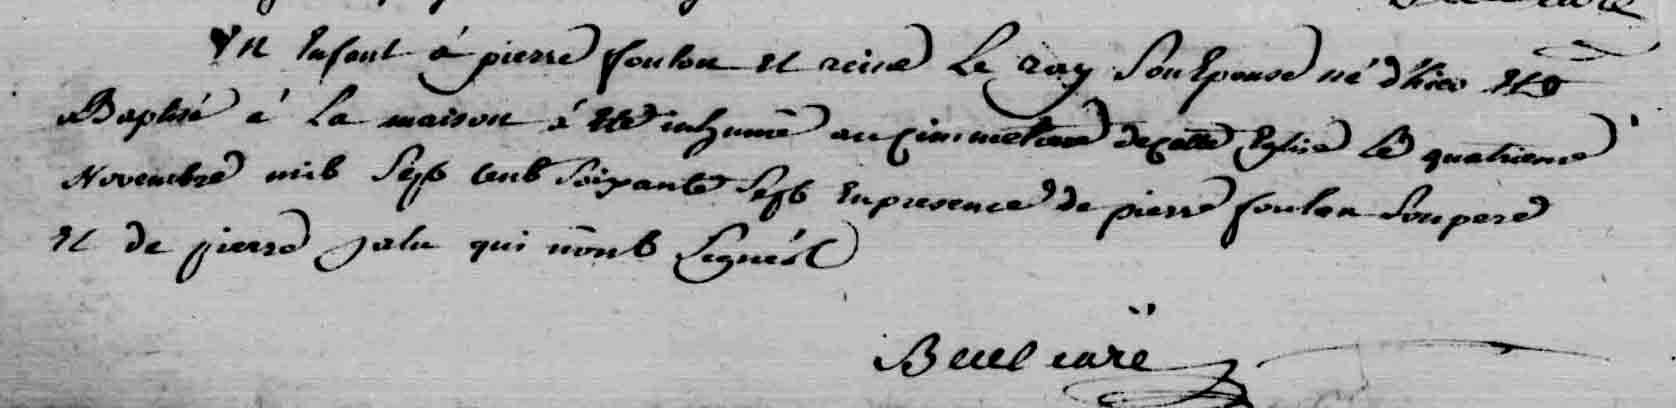 un enfant à pierre foulon et reine Le ray son Epouse né d'hier et
Baptisé à La maison à été inhumé au cimmetiere de cette Eglise Le quatrieme
Novembre mil sept cent soixante sept en presence de pierre foulon son pere
et de pierre Jalu qui n'ont signés
Bécel curé